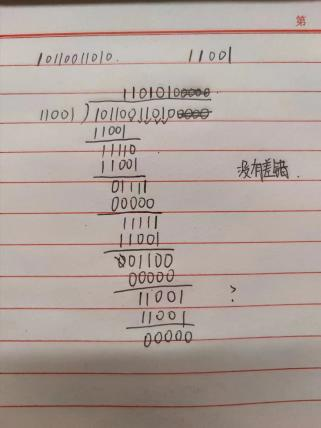 第
1011001010. 11001
1101010000
11001)10110011010000
11001
11110
11001
01111
00000
11111
11001 没有差错.
001100
00000
11001 ?
11001
00000